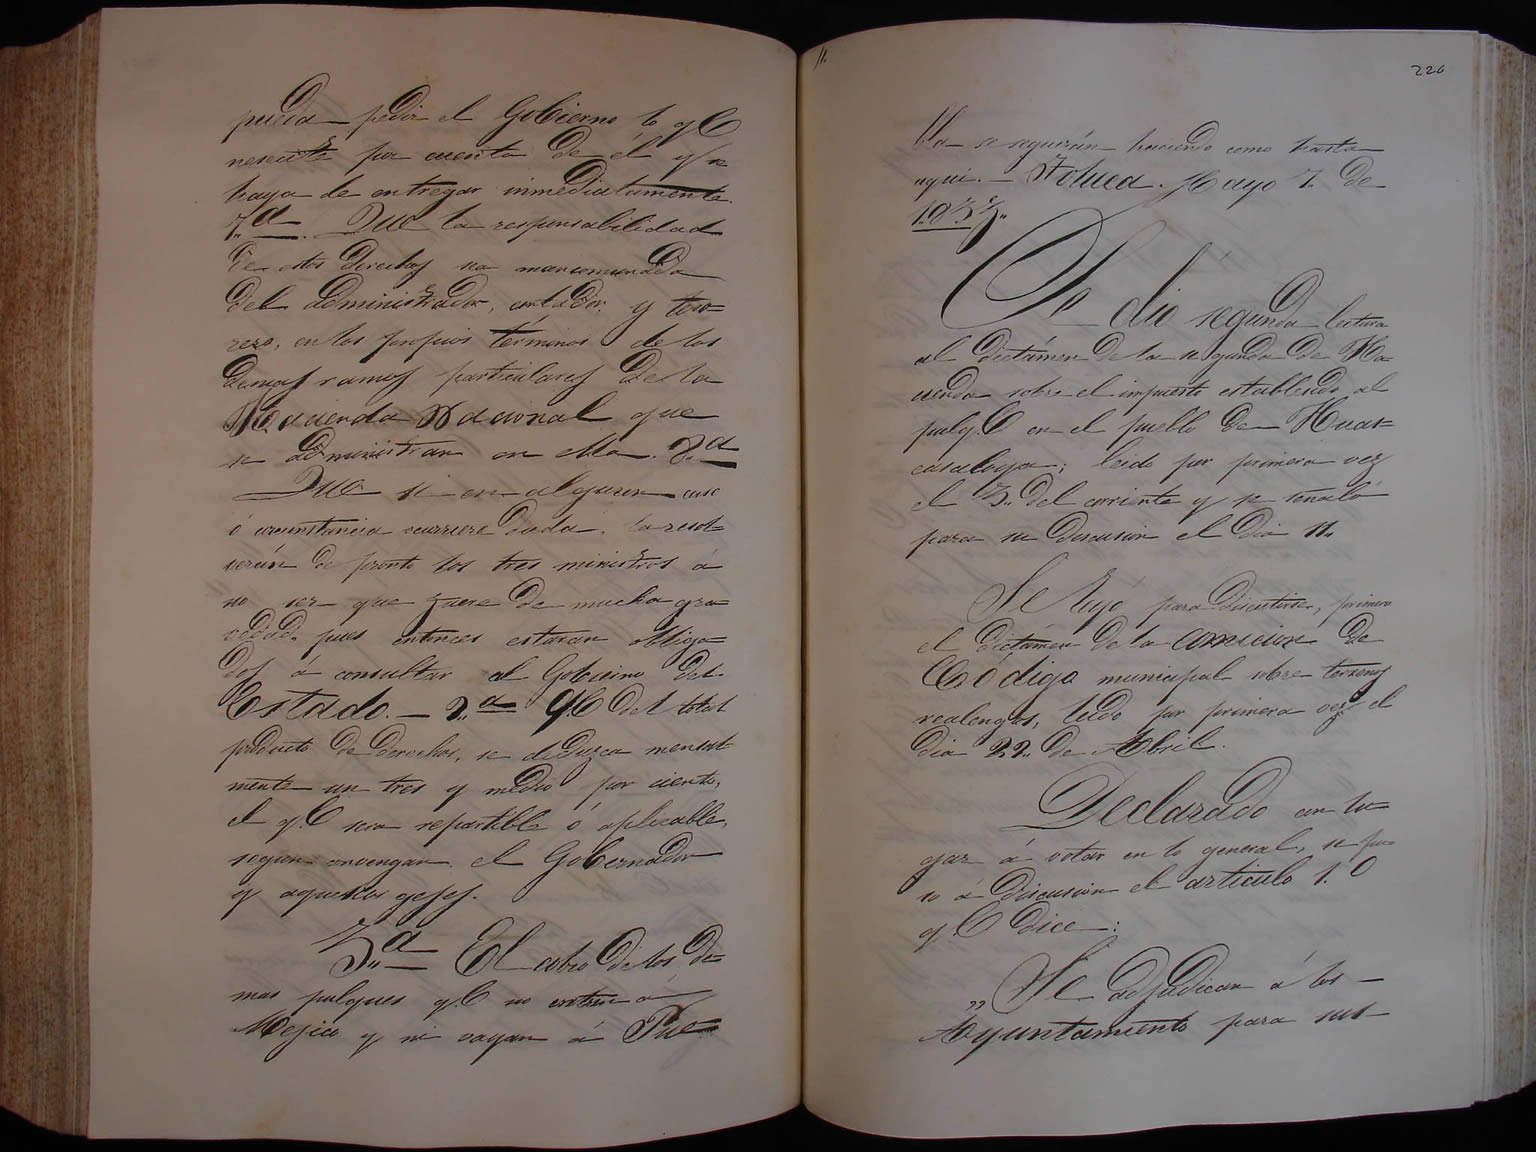 pueda pedir el Gobierno lo q.e
necesite por cuenta de él y se
haya de entregar inmediatamente.
7.a Que la responsabilidad
de estos derechos sea mancomunada
del administrador, contador, y teso-
rero, en los propios términos de los
demas ramos particulares de la
Hacienda Nacional que
se administran en ella. 8.a
Que si en alguren caso
ó circunstancia ocurriere duda, la resol-
verán de pronto los tres ministros á
no ser que fuere de mucha gra
vedad, pues entonces estaran obliga-
dos á consultar al Gobierno del
Estado. — 2.a Q.e del total
producto de derechos, se deduzca mensual
mente un tres y medio por ciento,
el q.e sera repartible ó aplicable,
segun convengan el Gobernador
y aquellos gefes.
3.a El cobro de los de-
mas pulques q.e no entren á
Mejico y ni vayan á Pue-
226
bla se seguirán haciendo como hasta
aqui. — Toluca. Mayo 7. de
1833.
Se dió segunda lectura
al dictámen de la segunda de Ha
cienda sobre el impuesto establecido al
pulq.e en el pueblo de Huas-
casaloya; leido por primera vez
el 3. del corriente y se señaló
para su discusion el dia 11.
Se leyó para discutirse, primero
el dictámen de la comision de
Código municipal sobre terrenos
realengos, leido por primera vez el
dia 22. de Abril.
Declarado con lu-
gar á votar en lo general, se pu-
so á discusion el articulo 1.o
q.e dice:
„Se adjudican á los
Ayuntamiento para sus